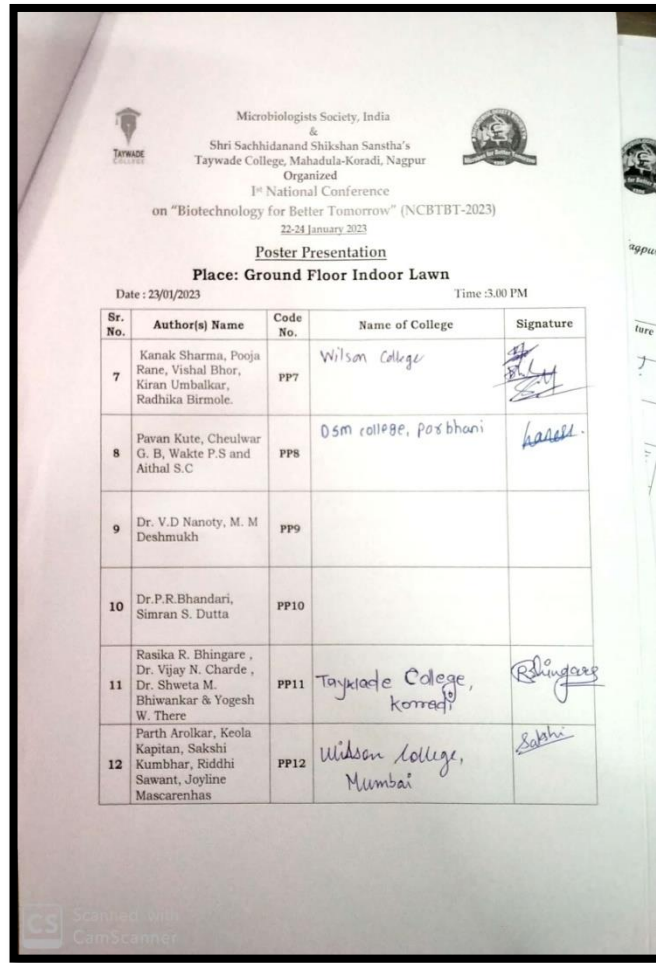 TAYWADE
COLLEGE
Microbiologists Society, India
&
Shri Sachhidanand Shikshan Sanstha's
Taywade College, Mahadula-Koradi, Nagpur
Organized
1st National Conference
on "Biotechnology for Better Tomorrow" (NCBTBT-2023)
22-24 January 2023
Poster Presentation
Place: Ground Floor Indoor Lawn
Date : 23/01/2023 Time :3.00 PM
Sr. No. Author(s) Name Code No. Name of College Signature
7 Kanak Sharma, Pooja Rane, Vishal Bhor, Kiran Umbalkar, Radhika Birmole. PP7 Wilson College
8 Pavan Kute, Cheulwar G. B, Wakte P.S and Aithal S.C PP8 DSM college, Parbhani
9 Dr. V.D Nanoty, M. M Deshmukh PP9
10 Dr.P.R.Bhandari, Simran S. Dutta PP10
11 Rasika R. Bhingare , Dr. Vijay N. Charde , Dr. Shweta M. Bhiwankar & Yogesh W. There PP11 Taywade College, Korradi RBhingare
12 Parth Arolkar, Keola Kapitan, Sakshi Kumbhar, Riddhi Sawant, Joyline Mascarenhas PP12 Wilson College, Mumbai Sakshi
CS Scanned with
CamScanner